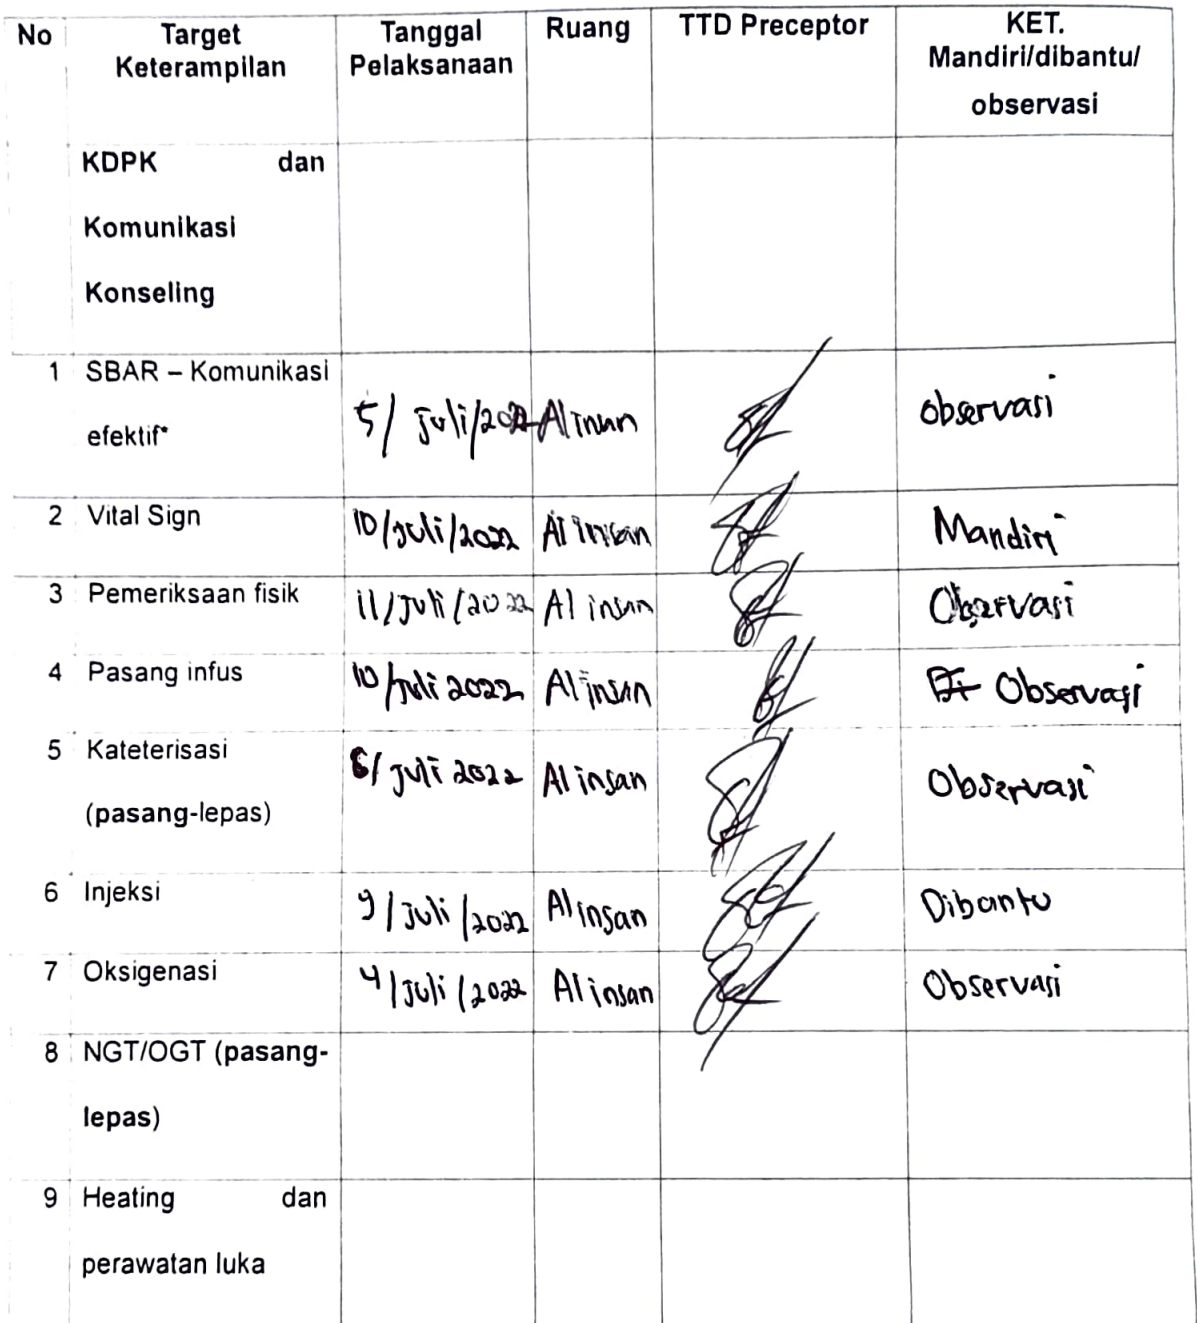 No Target Keterampilan Tanggal Pelaksanaan Ruang TTD Preceptor KET. Mandiri/dibantu/ observasi
KDPK dan
Komunikasi
Konseling
1 SBAR – Komunikasi
efektif*
5/ Juli/2022 Al insan observasi
2 Vital Sign 10/Juli/2022 Al insan Mandiri
3 Pemeriksaan fisik 11/Juli/2022 Al insan Observasi
4 Pasang infus 10/Juli 2022 Al insan Observasi
5 Kateterisasi
(pasang-lepas)
6/ Juli 2022 Al insan Observasi
6 Injeksi 9/Juli/2022 Al insan Dibantu
7 Oksigenasi 4/Juli/2022 Al insan Observasi
8 NGT/OGT (pasang-
lepas)
9 Heating dan
perawatan luka